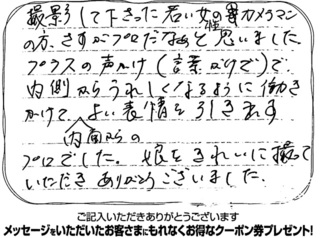 撮影して下さった若い女性カメラマン
の方、さすがプロだなぁと思いました。
プラスの声かけ(言葉がけ)で、
内側からうれしくなるように働き
かけて、よい表情を引き出す
内面からの
プロでした。娘をきれいに撮って
いただきありがとうございました。
ご記入いただきありがとうございます
メッセージをいただいたお客さまにもれなくお得なクーポン券プレゼント!